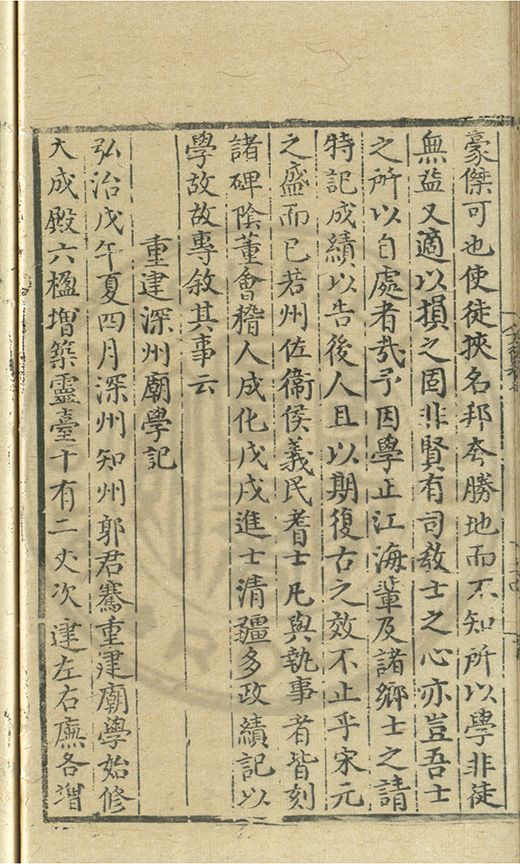 豪傑可也使徒挾名邦夸勝地而不知所以學非徒
無益又適以損之固非賢有司敎士之心亦豈吾士
之所以自處者㢤予因學正江海輩及諸鄉士之請
特記成績以告後人且以期復古之效不止乎宋元
之盛而已若州佐衞侯義民耆士凡與執事者皆刻
諸碑陰董會稽人成化戊戌進士清疆多政績記以
學故故專敘其事云
重建深州廟學記
弘治戊午夏四月深州知州郭君騫重建廟學始修
大成殿六楹增築靈臺十有二丈次建左右廡各增